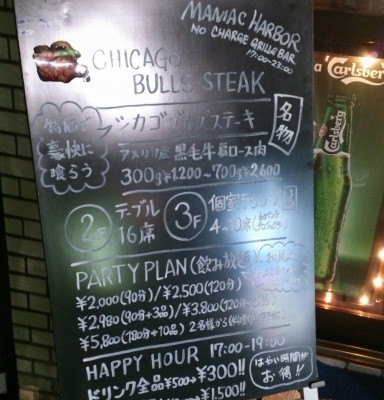 MANIAC HARBOR
NO CHARGE GRILL BAR
17:00-23:00
CHICAGO
BULLS STEAK
シカゴブルズステーキ
名物
豪快に
喰らう
アメリカ産 黒毛牛肩ロース肉
300g¥1.200〜700g¥2.600
2F テーブル
16席
3F 個室
4〜10席
PARTY PLAN (飲み放題)
¥2,000(90分)/¥2,500(120分)
¥2,980(90分+3品)/¥3,800(120分
¥5,800(180分+10品) 2名様から
HAPPY HOUR 17:00-19:00
ドリンク全品¥500→¥300!!
¥1,500!!
はやい時間が
お得!!
Carlsberg
Carlsberg